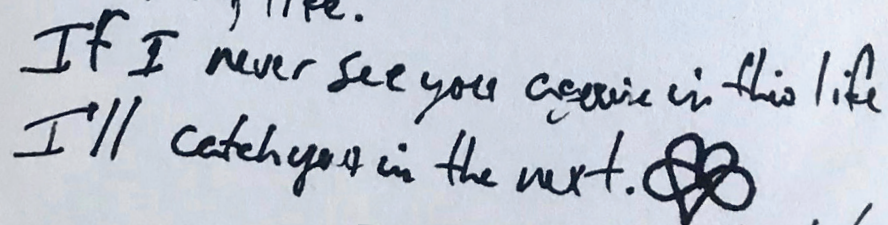 life.
If I never see you again in this life
I'll catch you in the next.